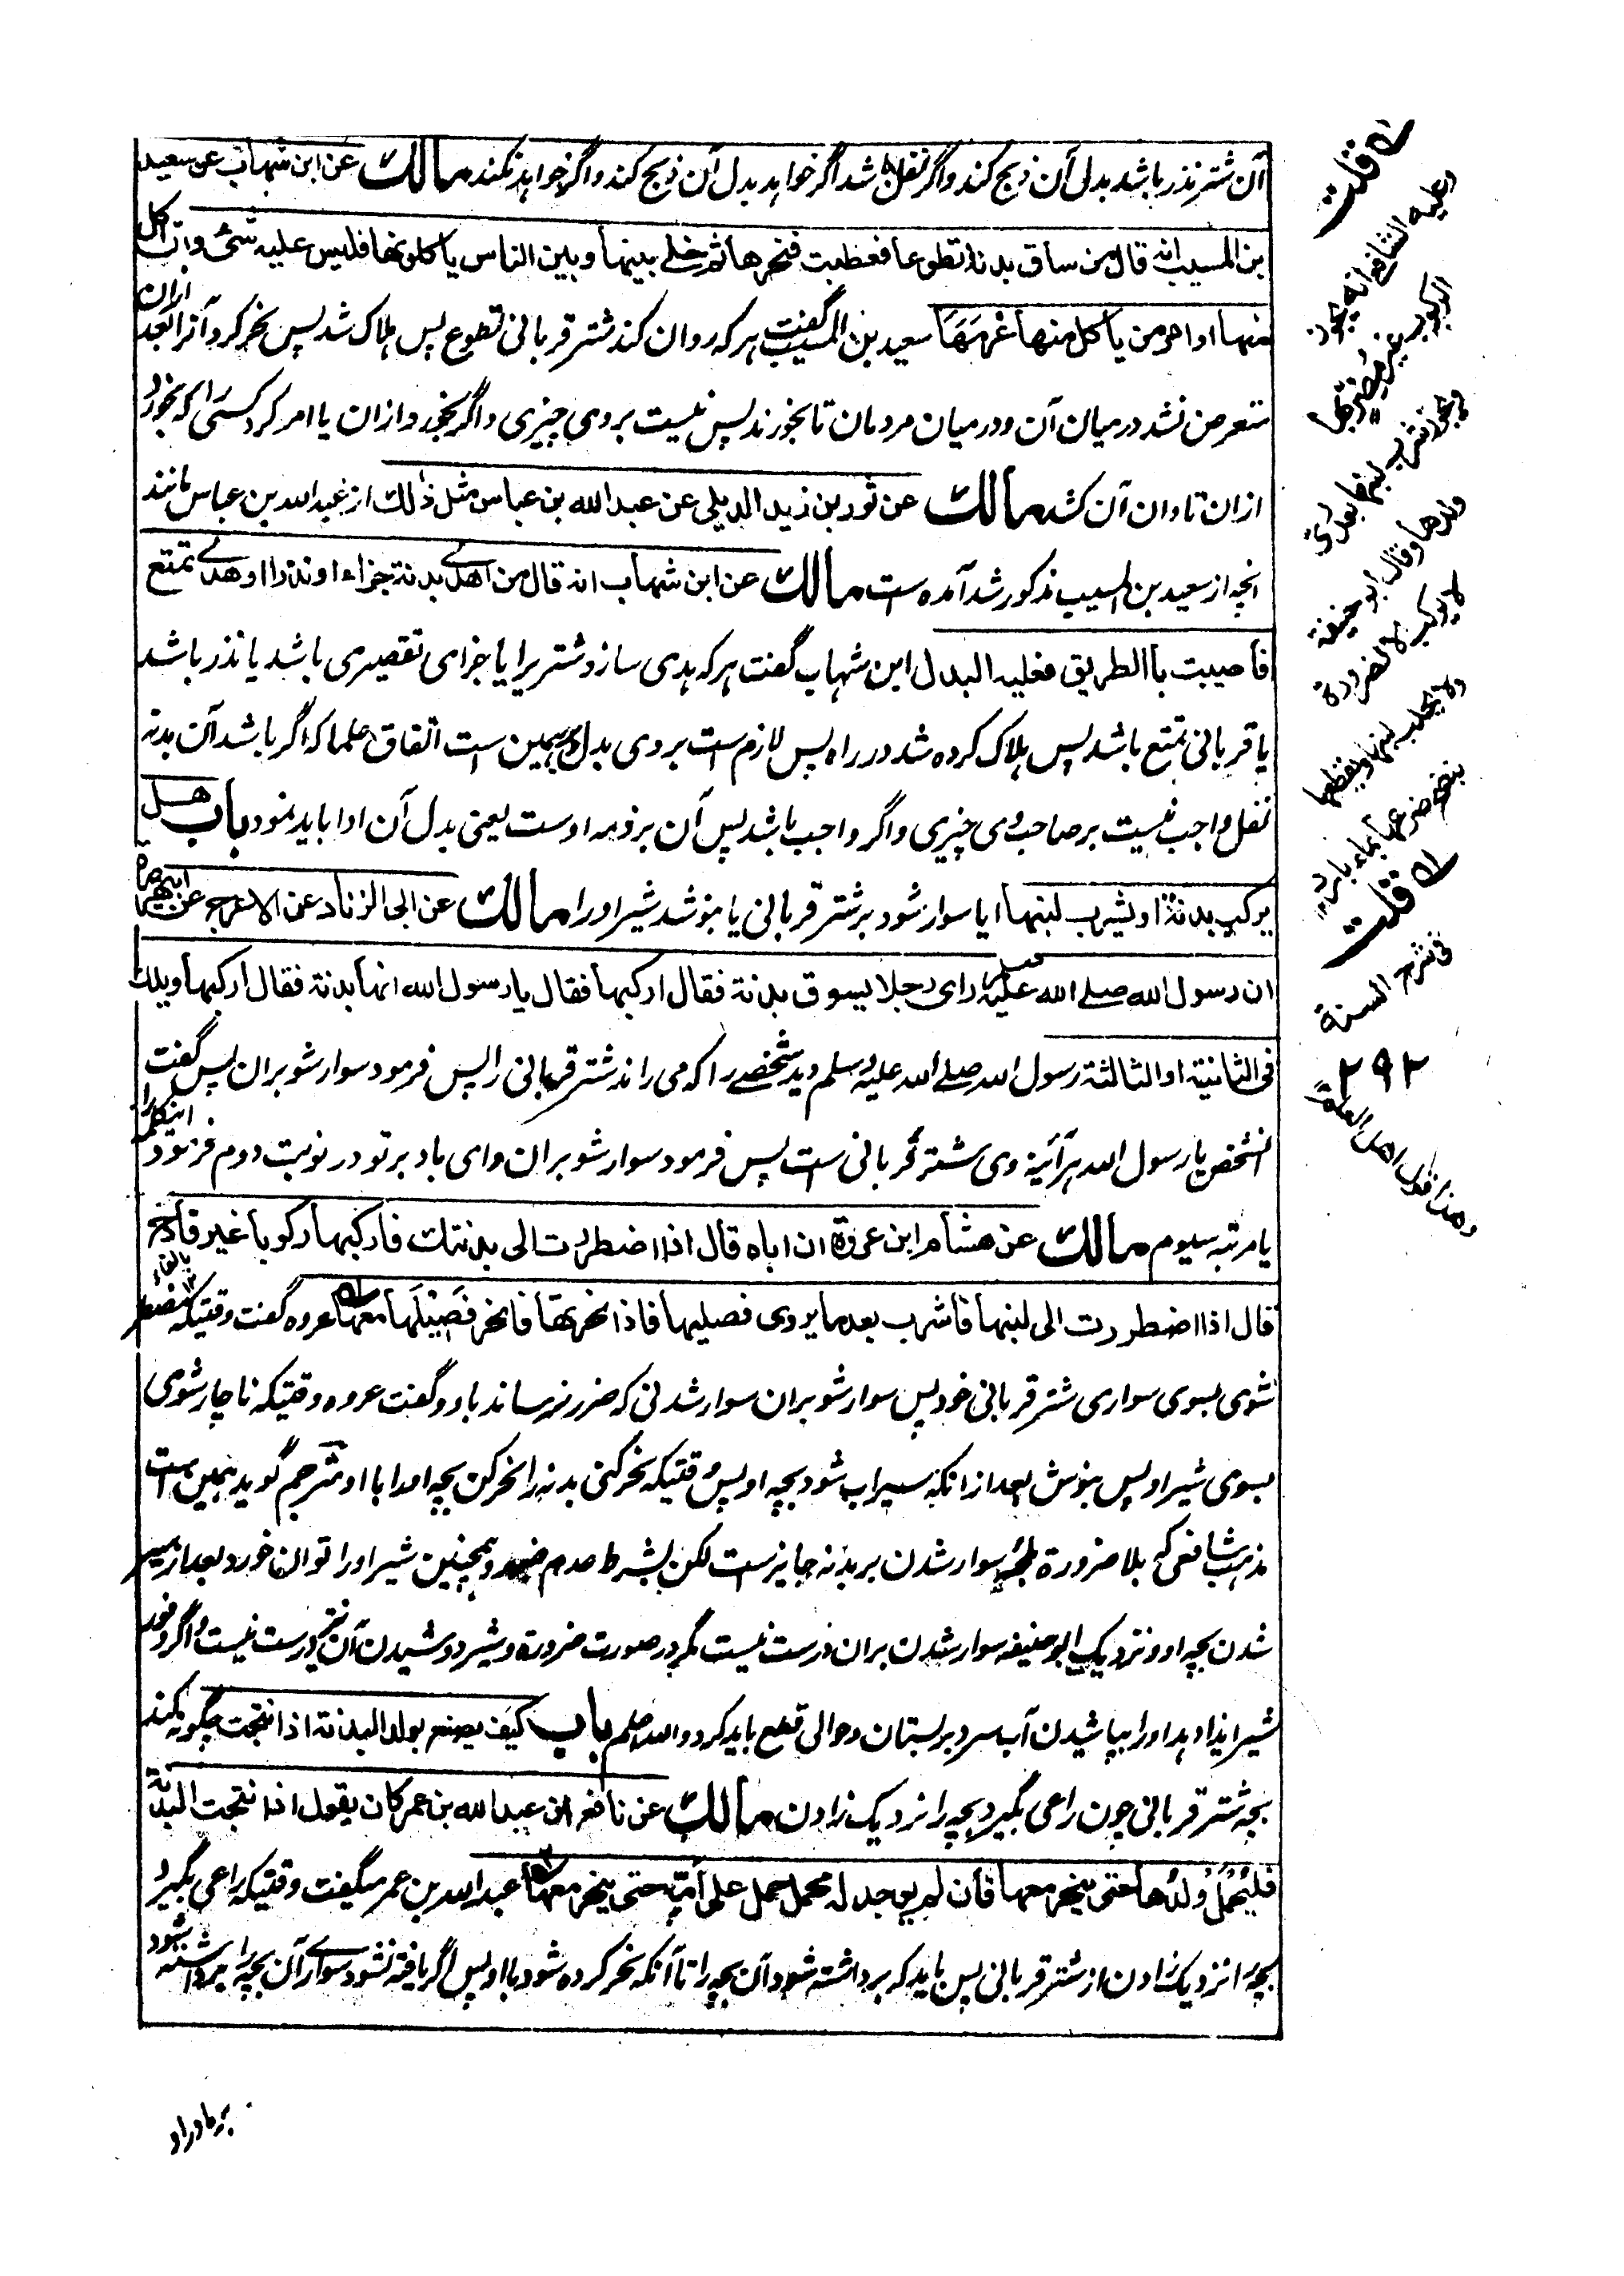 آن شتر نذر باشد بدل آن ذبح کند و اگر نفل باشد اگر خواهد بدل آن ذبح کند و اگر خواهد نکند مالك عن ابن شهاب عن سعيد
بن المسيب انه قال من ساق بدنة تطوعا فعطبت فنحرها ثم خلے بينها و بين الناس ياكلونها فليس عليه شئ وان اكل
منها او امر من ياكل منها غرمها سعيد بن المسيب گفت هر که روان کند شتر قربانی تطوع پس هلاک شد پس نحر کرد آنرا بعد ازان
متعرض نشد درمیان آن و درمیان مردمان تا بخورند پس نیست بر وی چیزی و اگر بخورد ازان یا امر کرد کسی را که بخورد
ازان تاوان آن کشد مالك عن ثور بن زيد الديلي عن عبد الله بن عباس مثل ذلك از عبد الله بن عباس مانند
آنچه از سعید بن المسیب مذکور شد آمده است مالك عن ابن شهاب انه قال من اهدى بدنة جزاء او نذرا او هدى تمتع
فاصيبت بالطريق فعليه البدل ابن شهاب گفت هر که هدی سازد شتریرا یا جزای تقصیری باشد یا نذر باشد
یا قربانی تمتع باشد پس هلاک کرده شد در راه پس لازم ست بر وی بدل همین است اتفاق علما که اگر باشد آن بدنه
نفل واجب نیست بر صاحب وی چیزی و اگر واجب باشد پس آن بر ذمه اوست یعنی بدل آن ادا باید نمود باب هل
يركب بدنة او يشرب لبنها ایا سوار شود بر شتر قربانی یا بنوشد شیر او را مالك عن ابى الزناد عن الاعرج عن ابيهريرة
ان رسول الله صلے الله عليه وسلم راى رجلا يسوق بدنة فقال اركبها فقال يا رسول الله انها بدنة فقال اركبها ويلك
فى الثانية او الثالثة رسول الله صلے الله علیه وسلم دید شخصے را که می راند شتر قربانی را پس فرمود سوار شو بران پس گفت
آنشخص یا رسول الله هر آئینه وی شتر قربانی ست پس فرمود سوار شو بران وای باد بر تو در نوبت دوم فرمود اینکلمه را
یا مرتبه سیوم مالك عن هشام ابن عروة ان اباه قال اذا اضطررت الى بدنتك فاركبها ركوبا غير فادح
قال اذا اضطررت الى لبنها فاشرب بعد ما يروى فصيلها فاذا نحرتها فانحر فصيلها معها عروه گفت وقتیکه مضطر
شوی بسوی سواری شتر قربانی خود پس سوار شو بران سوار شدنی که ضرر نرساند باو و گفت عروه وقتیکه ناچار شوی
بسوی شیر او پس بنوش بعد ازانکه سیراب شود بچه او پس وقتیکه نحر کنی بدنه را نحر کن بچه او را با او مترجم گوید همین ست
مذهب شافعی که بلا ضرورة سوار شدن بر بدنه جایز ست لکن بشرط عدم ضرر و همچنین شیر او را توان خورد بعد از سیر
شدن بچه او و نزدیک ابو حنیفه سوار شدن بران درست نیست مگر در صورت ضرورة و شیر دوشیدن آن نیز درست نیست و اگر وفور
شیر ایذا دهد او را بپاشیدن آب سرد بر پستان و حوالی قطع باید کرد والله اعلم باب كيف يصنع بولد البدنة اذا نتجت چگونه کند
بچه شتر قربانی چون راعی بگیرد بچه را نزدیک زادن مالك عن نافع ان عبد الله بن عمر كان يقول اذا نتجت البدنة
فليحمل ولدها حتى ينحر معها فان لم يوجد له محمل حمل على امه حتى ينحر معها عبد الله بن عمر میگفت وقتیکه راعی بگیرد
بچه را نزدیک زادن از شتر قربانی پس باید که برداشته شود آن بچه را تا آنکه نحر کرده شود با او پس اگر یافته نشود سواری آن بچه را برداشته شود
بر مادر او
قلت
وعليه الشافعى انه يجوز
الركوب غير مضر بها
ويجوز شرب لبنها بعد رى
ولدها وقال ابو حنيفة
لا يركب الا لضرورة
ولا يحلب لبنها ويقطعها
بنضح ضرعها بماء بارد ١٢
قلت
فى شرح السنة
٢٩٢
وهذا قول اهل العلم